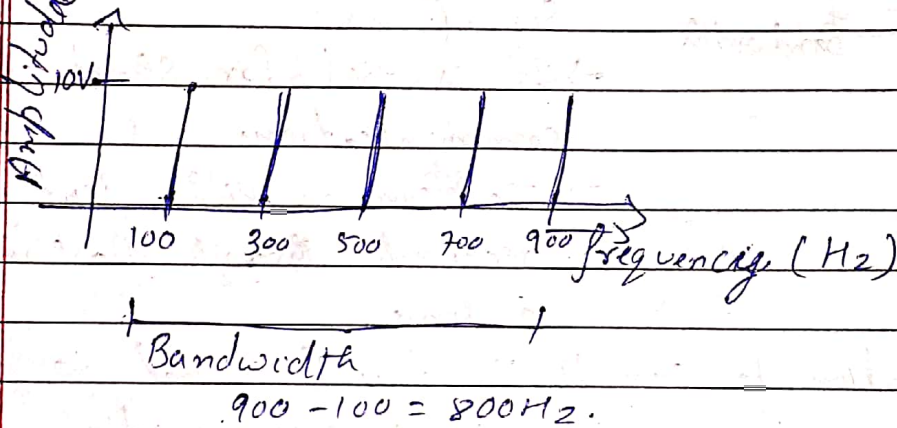 Amplitude
10V
100 300 500 700 900 frequencies (Hz)
Bandwidth
900 - 100 = 800Hz.